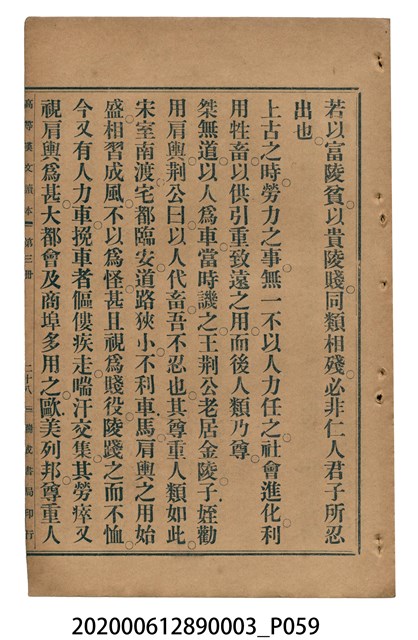 若以富陵貧以貴陵賤同類相殘必非仁人君子所忍
出也
上古之時勞力之事無一不以人力任之社會進化利
用牲畜以供引重致遠之用而後人類乃尊
桀無道以人爲車當時譏之王荆公老居金陵子姪勸
用肩輿荆公曰以人代畜吾不忍也其尊重人類如此
宋室南渡宅都臨安道路狹小不利車馬肩輿之用始
盛相習成風不以爲怪甚且視爲賤役陵踐之而不恤
今又有人力車挽車者傴僂疾走喘汗交集其勞瘁又
視肩輿爲甚大都會及商埠多用之歐美列邦尊重人
高等漢文讀本 第三册 二十八 三 書局印行
202000612890003_P059